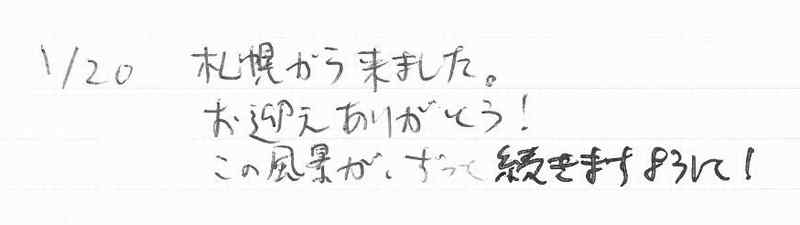 1/20 札幌から来ました。
お迎えありがとう!
この風景が、ずって続きますように!